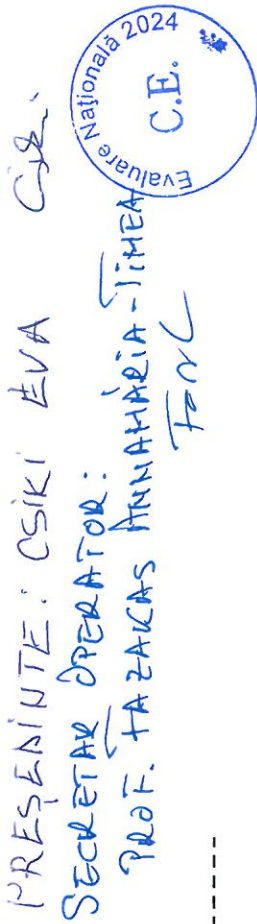 PREȘEDINTE: CSIKI EVA
SECRETAR OPERATOR:
PROF. FAZAKAS ANNAMÁRIA-TIMEA
Evaluare Națională 2024
C.E.